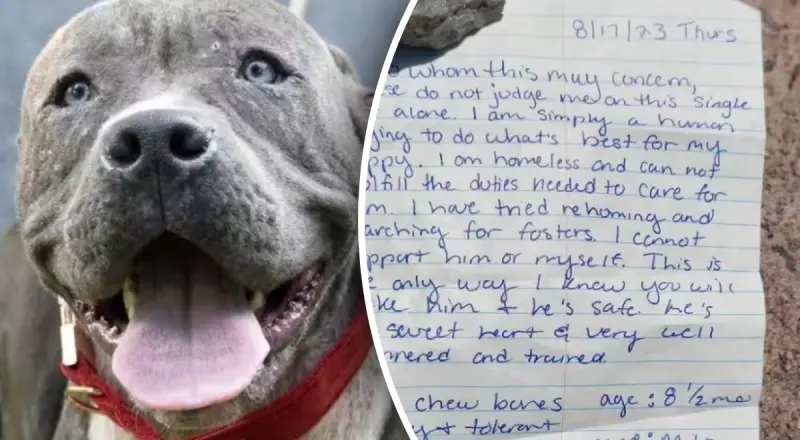 8/17/23 Thurs
whom this may concern,
do not judge me on this single
alone. I am simply a human
to do what's best for my
I am homeless and can not
the duties needed to care for
I have tried rehoming and
for fosters. I cannot
him or myself. This is
only way I know you will
him & he's safe. he's
sweet heart & very well
and trained.
chew bones age: 8 1/2 mo
& tolerant